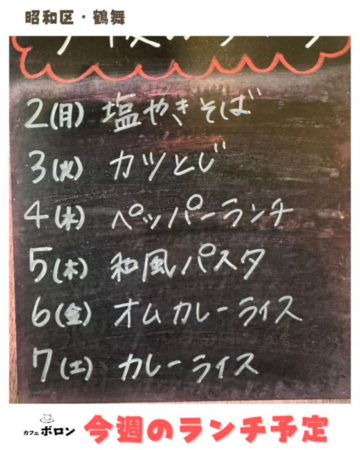 昭和区・鶴舞
2(月) 塩やきそば
3(火) カツとじ
4(水) ペッパーランチ
5(木) 和風パスタ
6(金) オムカレーライス
7(土) カレーライス
カフェ ボロン
今週のランチ予定